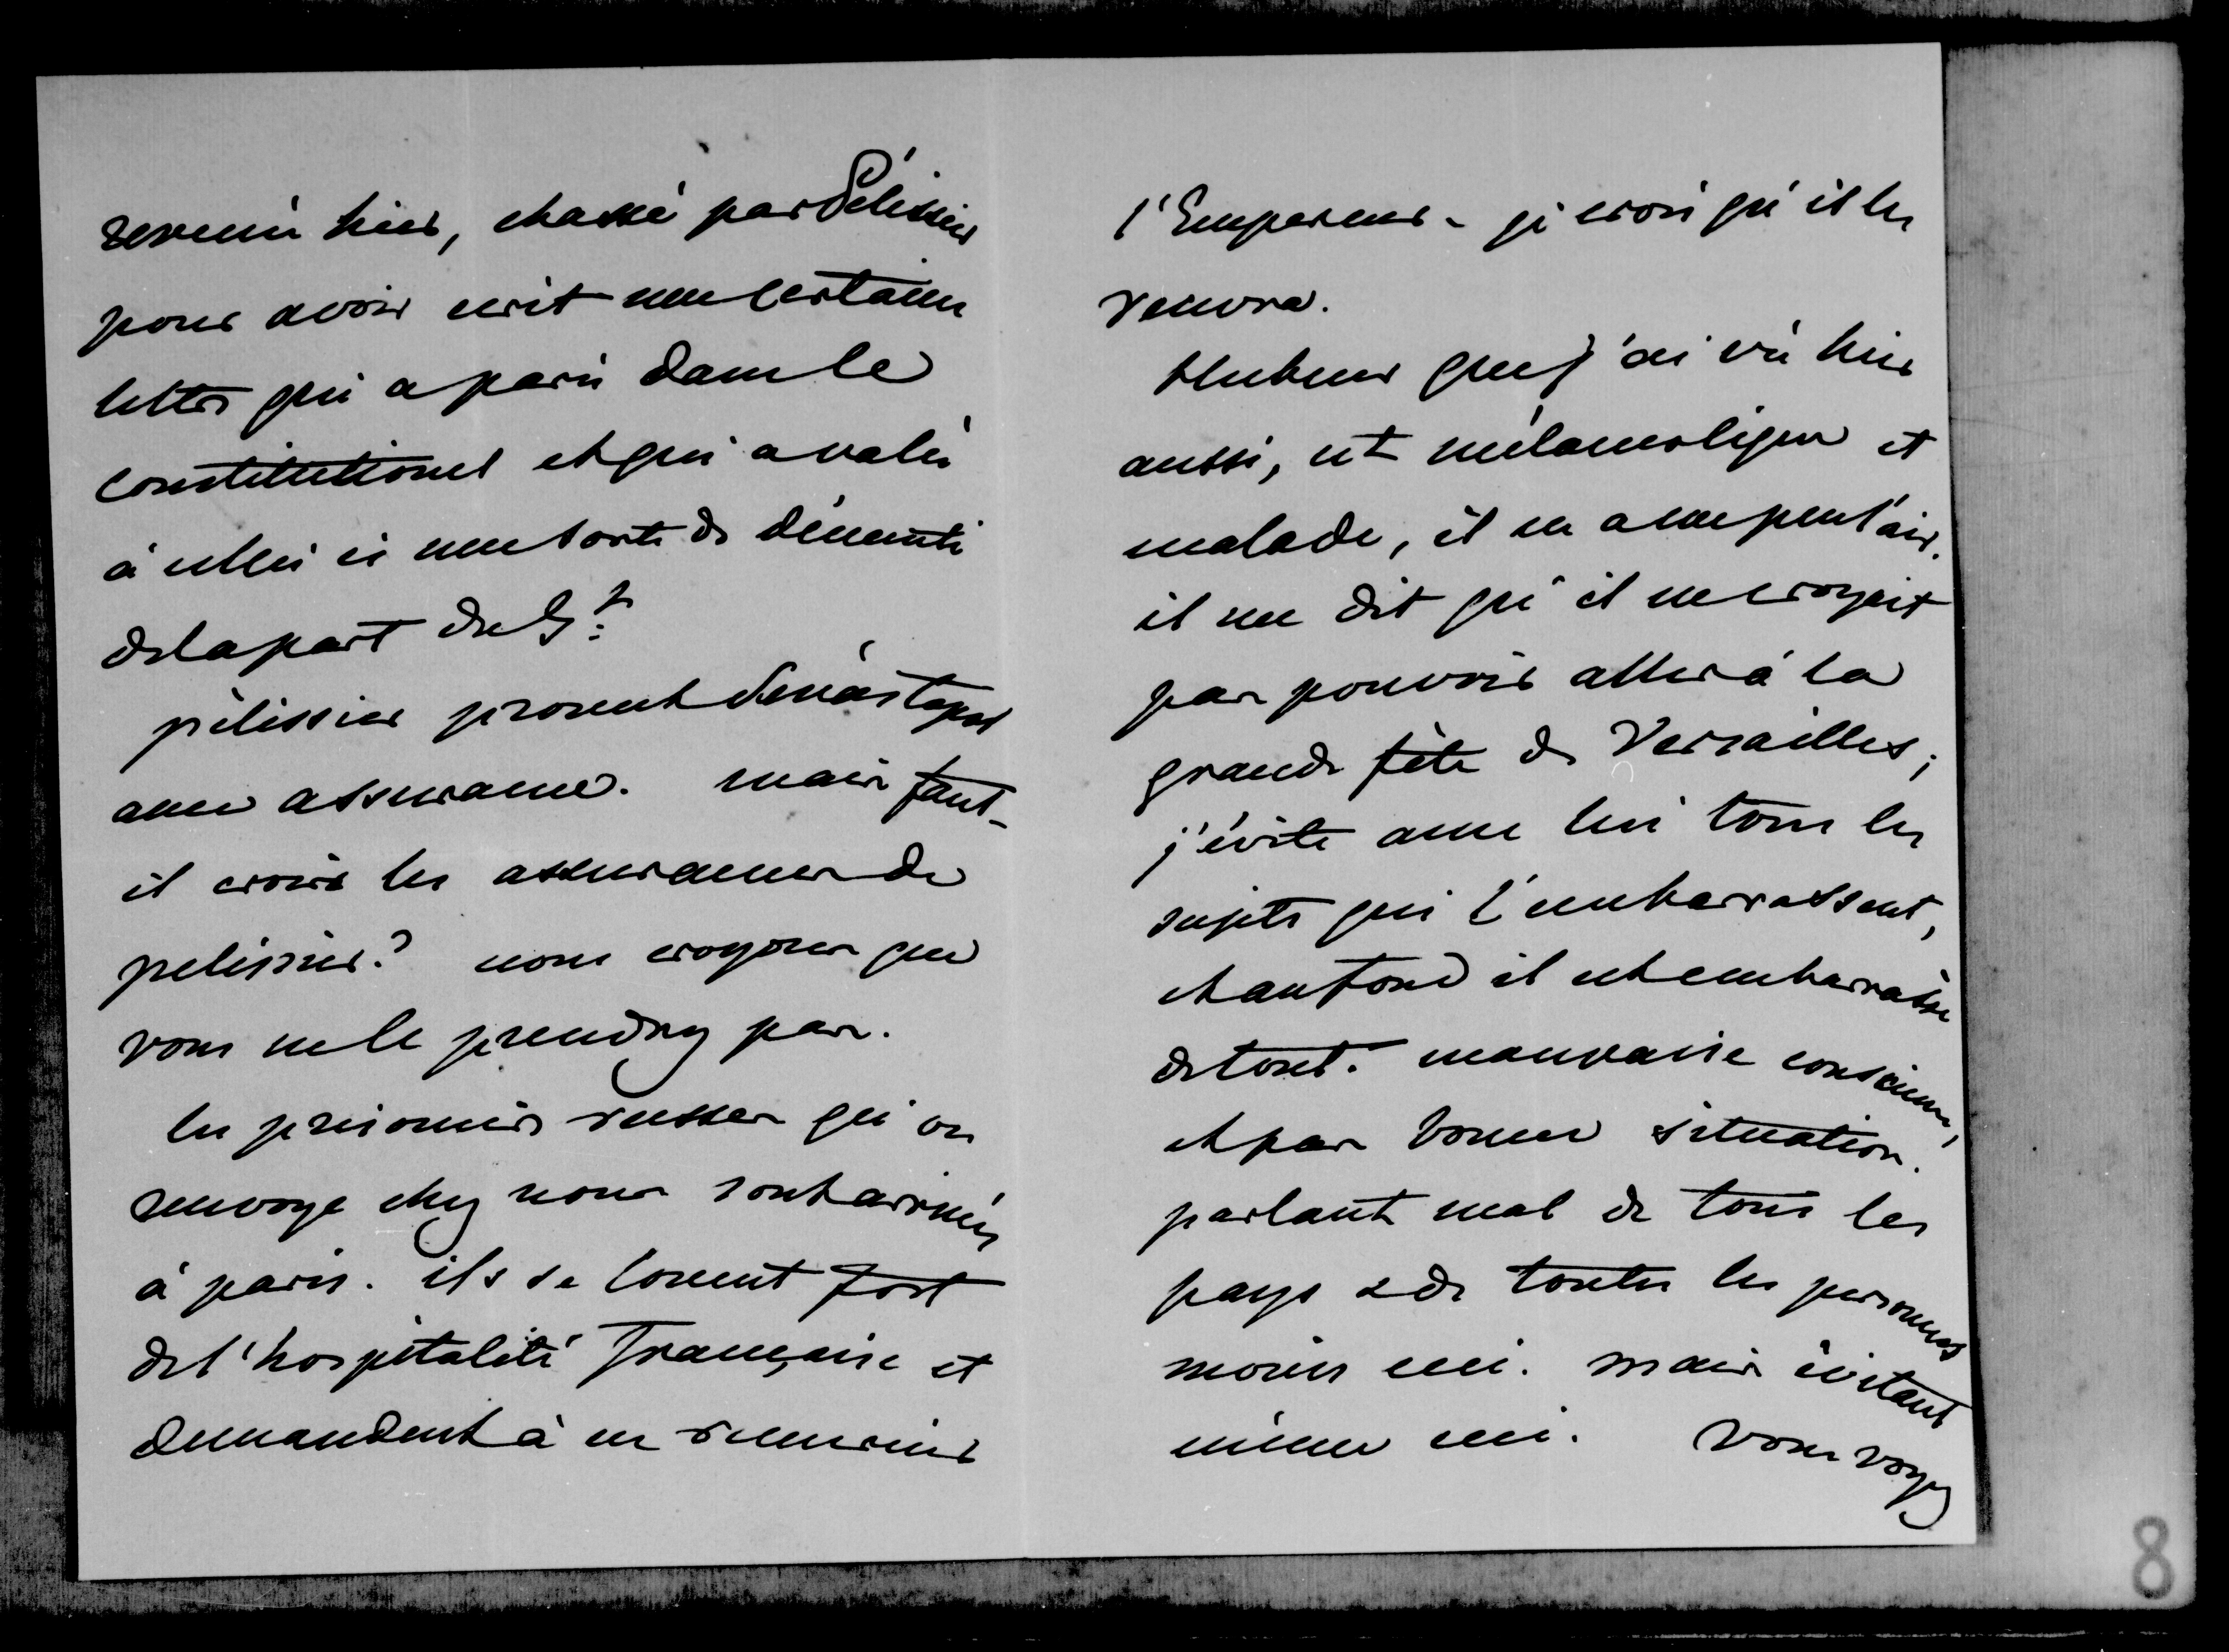 revenu hier, chassé par Pélissier
pour avoir ecrit une certaine
lettre qui a parû dans le
constitutionel et qui a valû
à celui ci une sorte de démenti
de la part du Gt
pélissier promet Sevastopol
avec assurance. mais faut-
il croire les assurances de
pelissier? nous croyons que
vous ne le prendrez pas.
les prisonniers russes qu'on
renvoye chez nous sont arrivés
à paris. ils se louent fort
de l'hospitalité française et
demandent à en remercier
l'Empereur - je crois qu'il les
verra.
Hubner que j'ai vû hier
aussi, est mélancolique et
malade, il en a un peu l'air.
il me dit qu'il ne croyait
pas pouvoir aller à la
grande fête de Versailles;
j'évite avec lui tous les
sujets qui l'embarrassent,
et au fond il est embarrassé
de tout. mauvaise conscience,
et pas bonne situation.
parlant mal de tous les
pays & de toutes les personnes
moins ici. mais évitant
même ici. Vous voyez
8